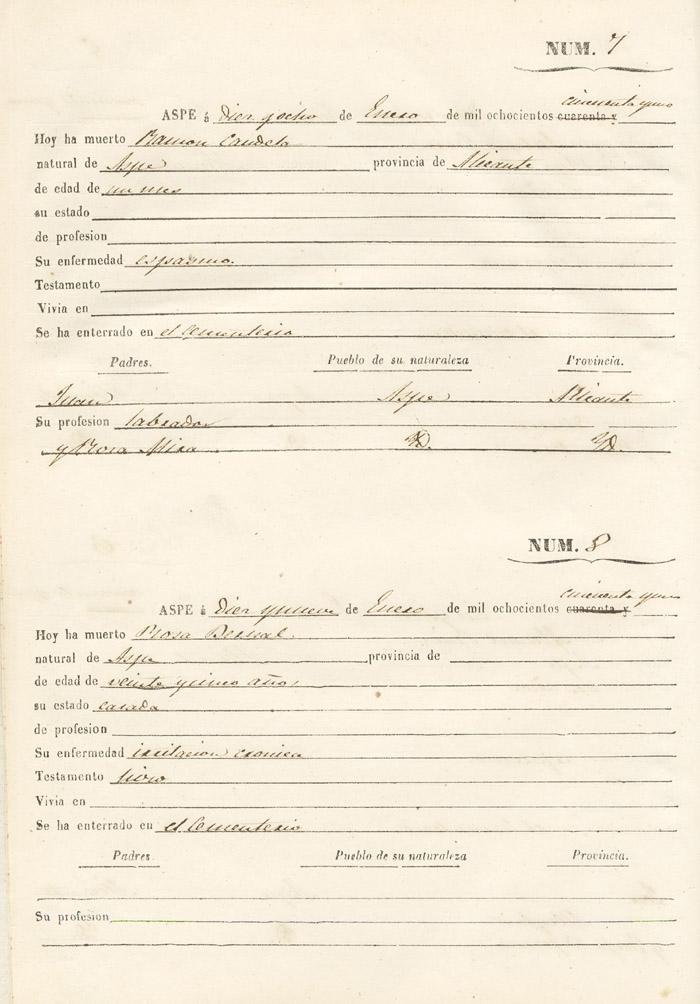 NUM. 7
cincuenta y uno
ASPE á diez y ocho de Enero de mil ochocientos cuarenta y
Hoy ha muerto Ramon Candela
natural de Aspe provincia de Alicante
de edad de un mes
su estado
de profesion
Su enfermedad espasmo.
Testamento
Vivia en
Se ha enterrado en el Cementerio
Padres. Pueblo de su naturaleza Provincia.
Juan Aspe Alicante
Su profesion labrador
y Rosa Mira Yd. Yd.
NUM. 8
cincuenta y uno
ASPE á diez y nueve de Enero de mil ochocientos cuarenta y
Hoy ha muerto Rosa Bernal.
natural de Aspe provincia de
de edad de veinte y cinco años
su estado casada
de profesion
Su enfermedad irritacion cronica
Testamento
Vivia en
Se ha enterrado en el Cementerio
Padres. Pueblo de su naturaleza Provincia.
Su profesion